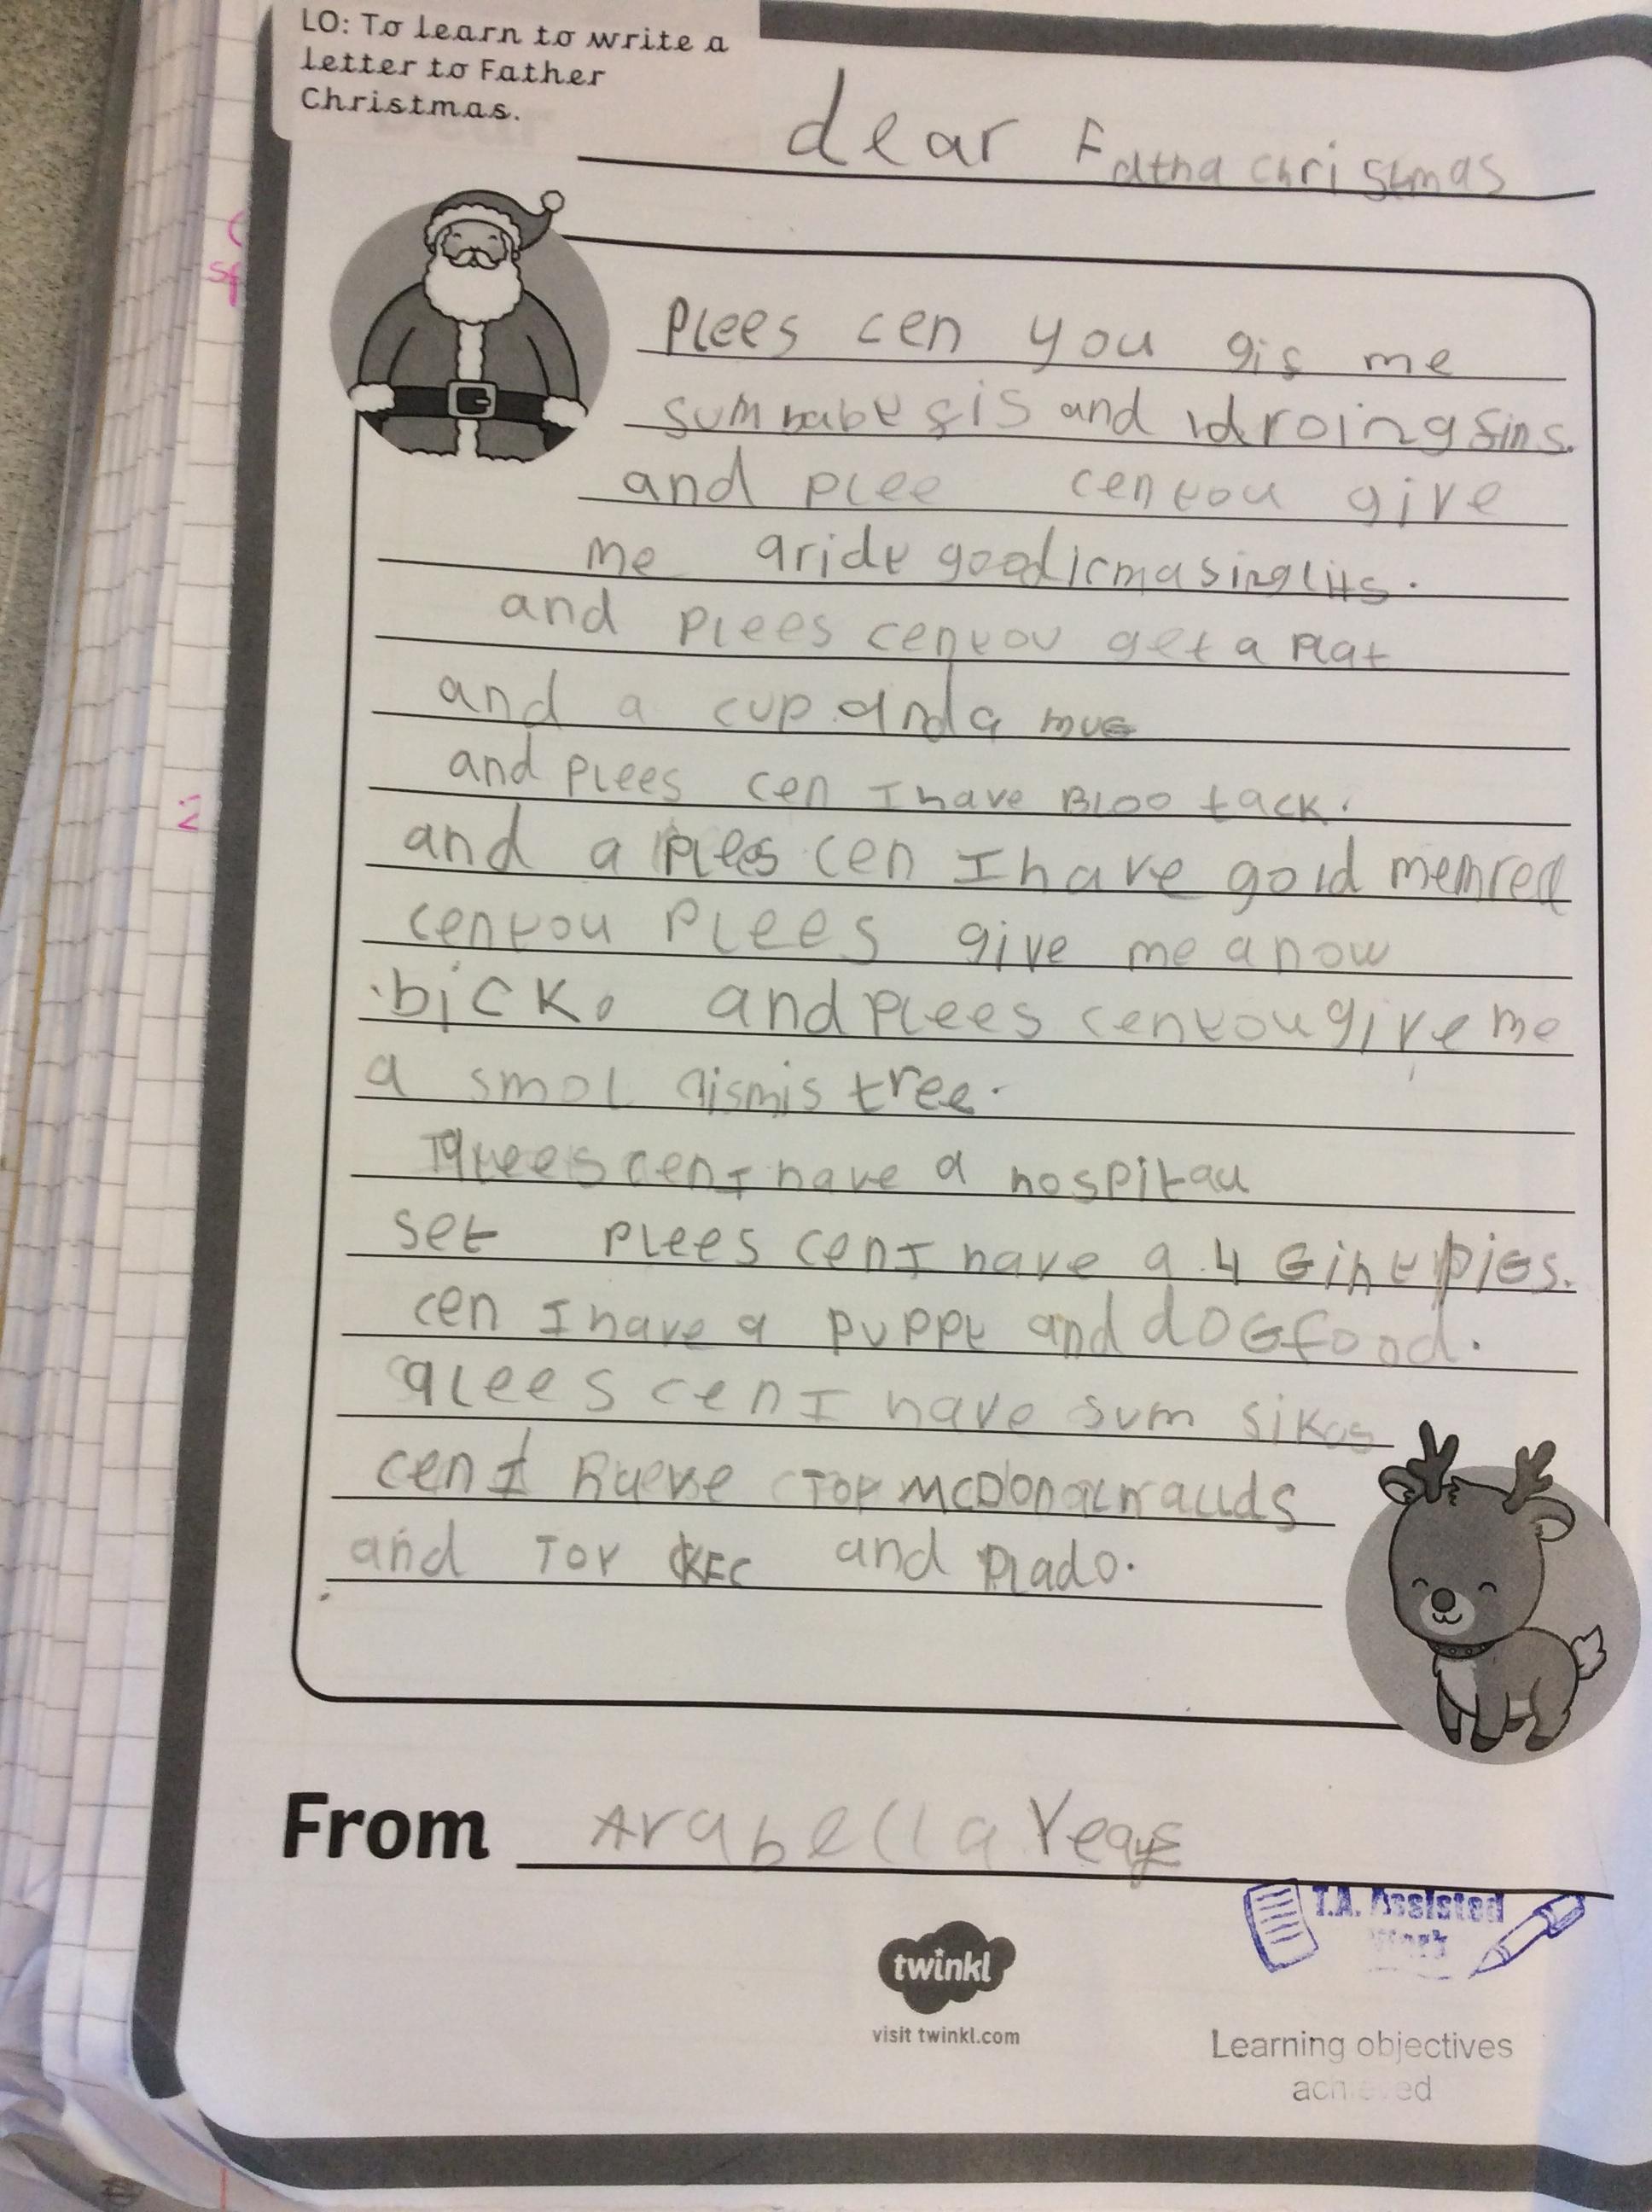 LO: To learn to write a
letter to Father
Christmas.
dear Fatha christmas
Plees cen you gis me
sum babe sis and droing sins.
and plee cen you give
me a ride good icmasing lits.
and Plees cen you get a Plat
and a cup and a mug
and Plees cen I have Bloo tack.
and a Plees cen I have gold memred
cen you Plees give me a now
bick. and Plees cen you give me
a smol qismis tree.
Plees cen I have a hospitau
set Plees cen I have a 4 Gine pigs.
cen I have a puppy and dOG food.
qlees cen I have sum sikas
cen I have Toy mcDonalnallds
and Toy KFC and Plado.
From Arabella
T.A. Assisted
Work
twinkl
visit twinkl.com
Learning objectives
achieved